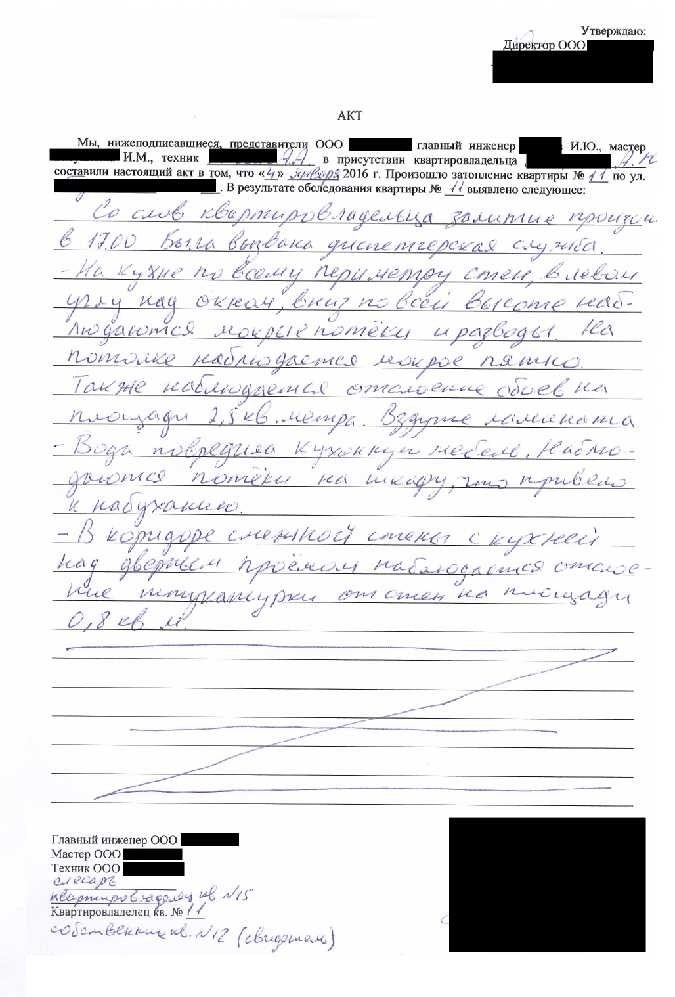 Утверждаю:
Директор ООО
АКТ
Мы, нижеподписавшиеся, представители ООО главный инженер И.Ю., мастер
И.М., техник А.А в присутствии квартировладельца А.Н
составили настоящий акт в том, что «4» января 2016 г. Произошло затопление квартиры № 11 по ул.
. В результате обследования квартиры № 11 выявлено следующее:
Со слов квартировладельца залитие произош
в 17.00 Была вызвана диспетчерская служба.
- На кухне по всему периметру стен, в левом
углу над окном, вниз по всей высоте наб-
людаются мокрые потёки и разводы. На
потолке наблюдается мокрое пятно.
Также наблюдается отслоение обоев на
площади 2,5 кв. метра. Вздутие ламината
- Вода повредила кухонную мебель. Наблю-
даются потёки на шкафу, что привело
к набуханию.
- В коридоре смежной стены с кухней
над дверным проёмом наблюдается отслое-
ние штукатурки от стен на площади
0,8 кв м.
Главный инженер ООО
Мастер ООО
Техник ООО
слесарь
квартировладелец кв №15
Квартировладелец кв. № 11
собственник кв. №12 (свидетель)